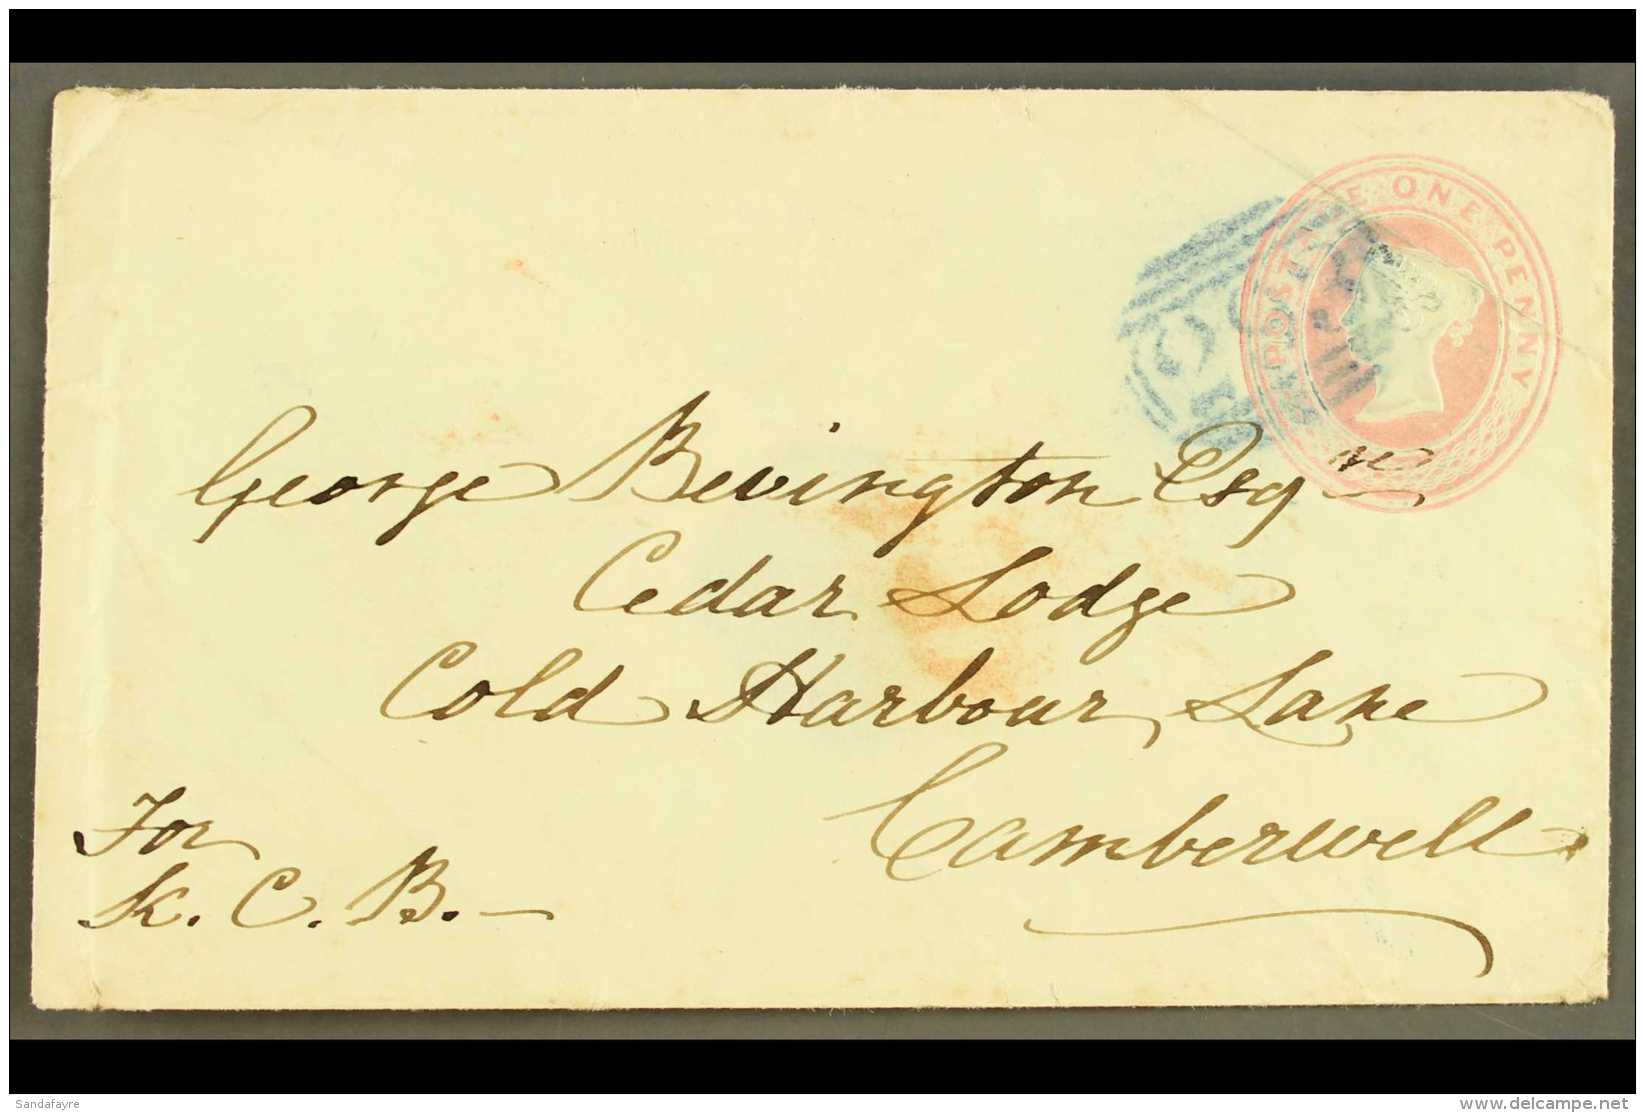 POSTAGE ONE PENNY
George Bevington Esqre
Cedar Lodge
Cold Harbour Lane
Camberwell
For
K. C. B. —
Sandafayre
delcampe.net